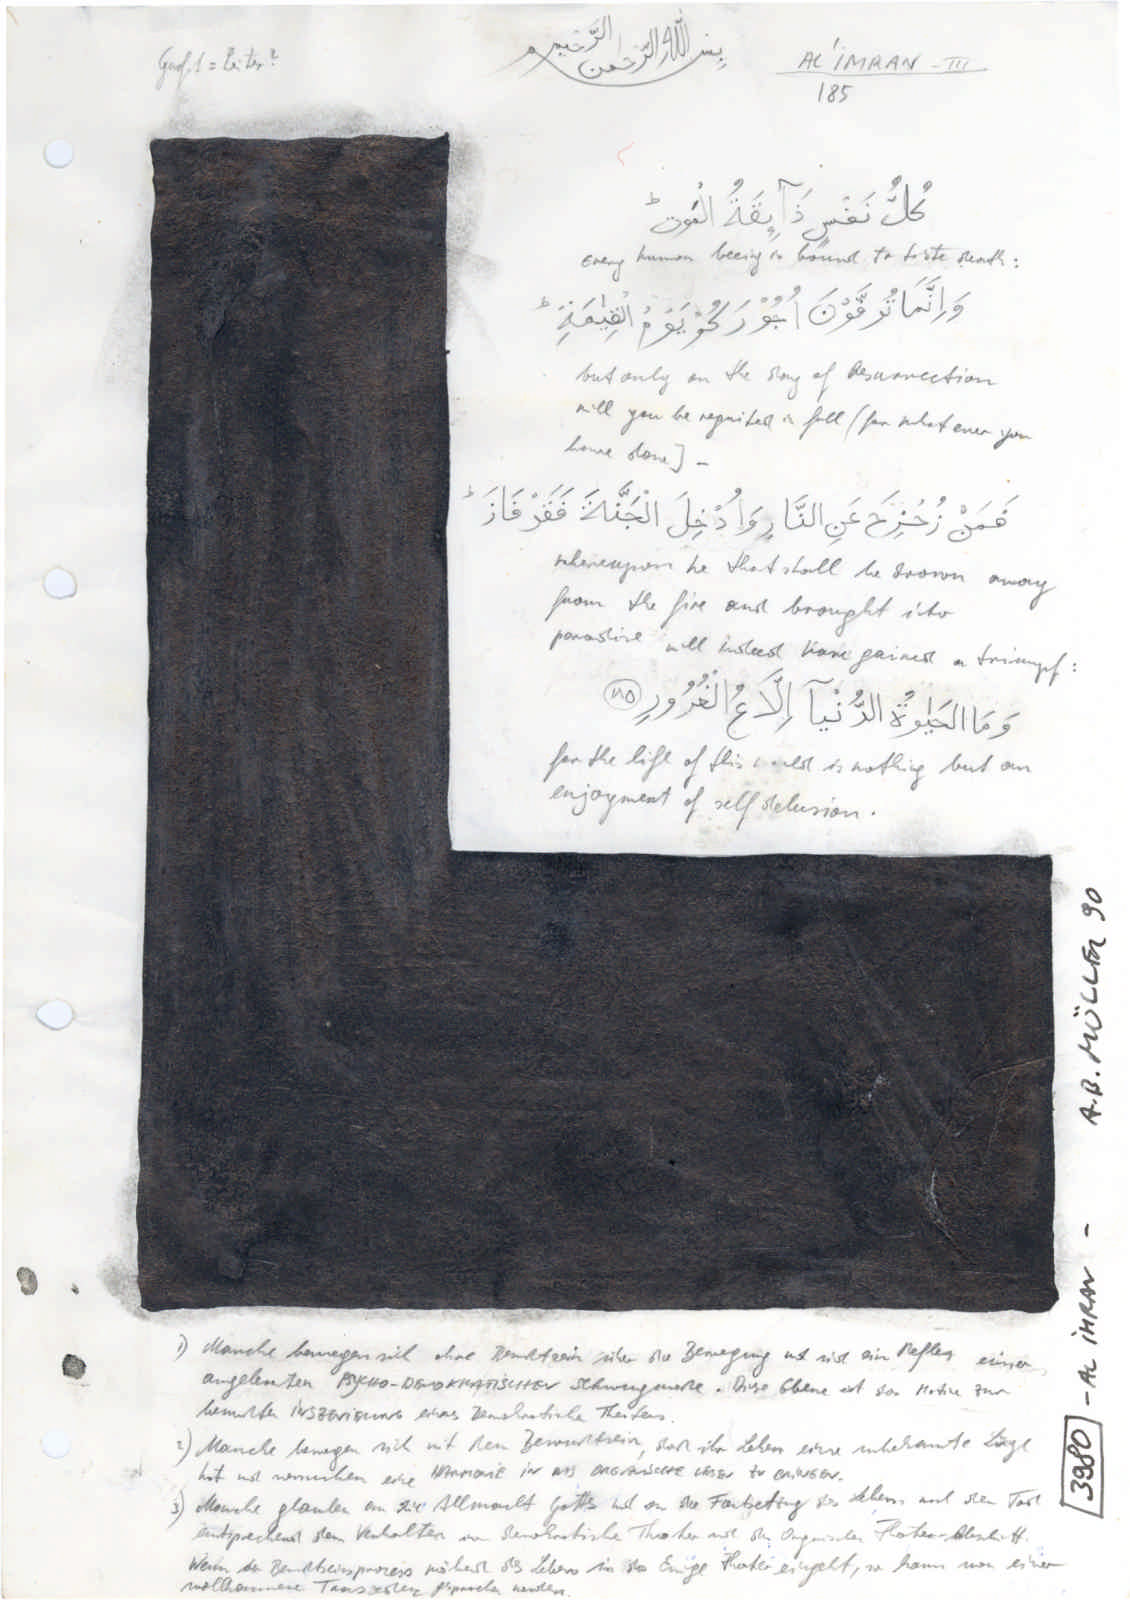 بسم الله الرحمن الرحيم
AL 'IMRAN - III
185
كُلُّ نَفْسٍ ذَآئِقَةُ الْمَوْتِ ط
every human beeing is bound to taste death:
وَاِنَّمَا تُوَفَّوْنَ اُجُوْرَكُمْ يَوْمَ الْقِيٰمَةِ ط
but only on the day of Resurrection
will you be requited in full (for what ever you
have done] -
فَمَنْ زُحْزِحَ عَنِ النَّارِ وَاُدْخِلَ الْجَنَّةَ فَقَدْ فَازَ ط
whereupon he that shall be drawn away
from the fire and brought into
paradise will indeed have gained a triumpf:
وَمَا الْحَيٰوةُ الدُّنْيَآ اِلَّا مَتَاعُ الْغُرُوْرِ ١٨٥
for the life of this world is nothing but an
enjoyment of self delusion.
1) Manche bewegen sich ohne Bewußtsein über die Bewegung und sind ein Reflex einer
angelernten PSYCHO-DEMOKRATISCHEN Schwungmasse. Diese Ebene ist das Motiv zur
bewußten INSZENIERUNG eines Demokratische Theaters.
2) Manche bewegen sich mit dem Bewußtsein, daß ihr Leben eine unbekannte Länge
hat und versuchen eine HARMONIE IN DAS ORGANISCHE LEBEN ZU BRINGEN.
3) Manche glauben an die Allmacht Gottes und an die Fortsetzung des Lebens nach dem Tod
entsprechend dem Verhalten im demokratische Theater und der Organischen Theater-
Wenn der Bewußtseinsprozess während des Lebens in das Ewige Theater eingeht, so kann man von einer
vollkommene Transzendenz gesprochen werden.
3980 - AL IMRAN - A.B. MÜLLER 90